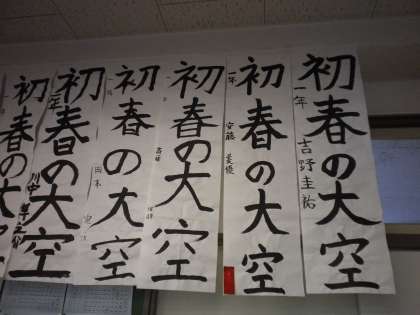 初春の大空
一年
吉野圭祐
初春の大空
一年
安藤美優
初春の大空
初春の大空
初春の大空
初春の大空